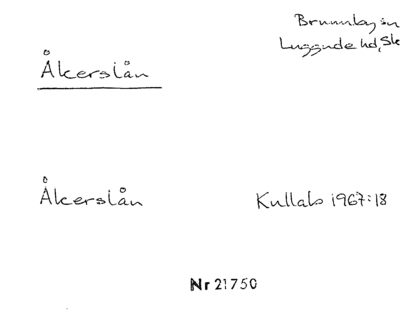 Brunnby sn
Luggude hd, Sk
Åkerslån
Åkerslån Kullabs 1967:18
Nr 21750